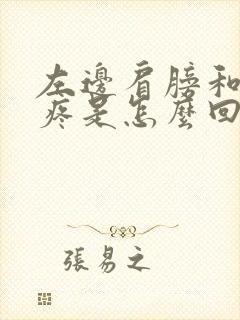 左邊肩膀和
疼是怎麼回
張易之